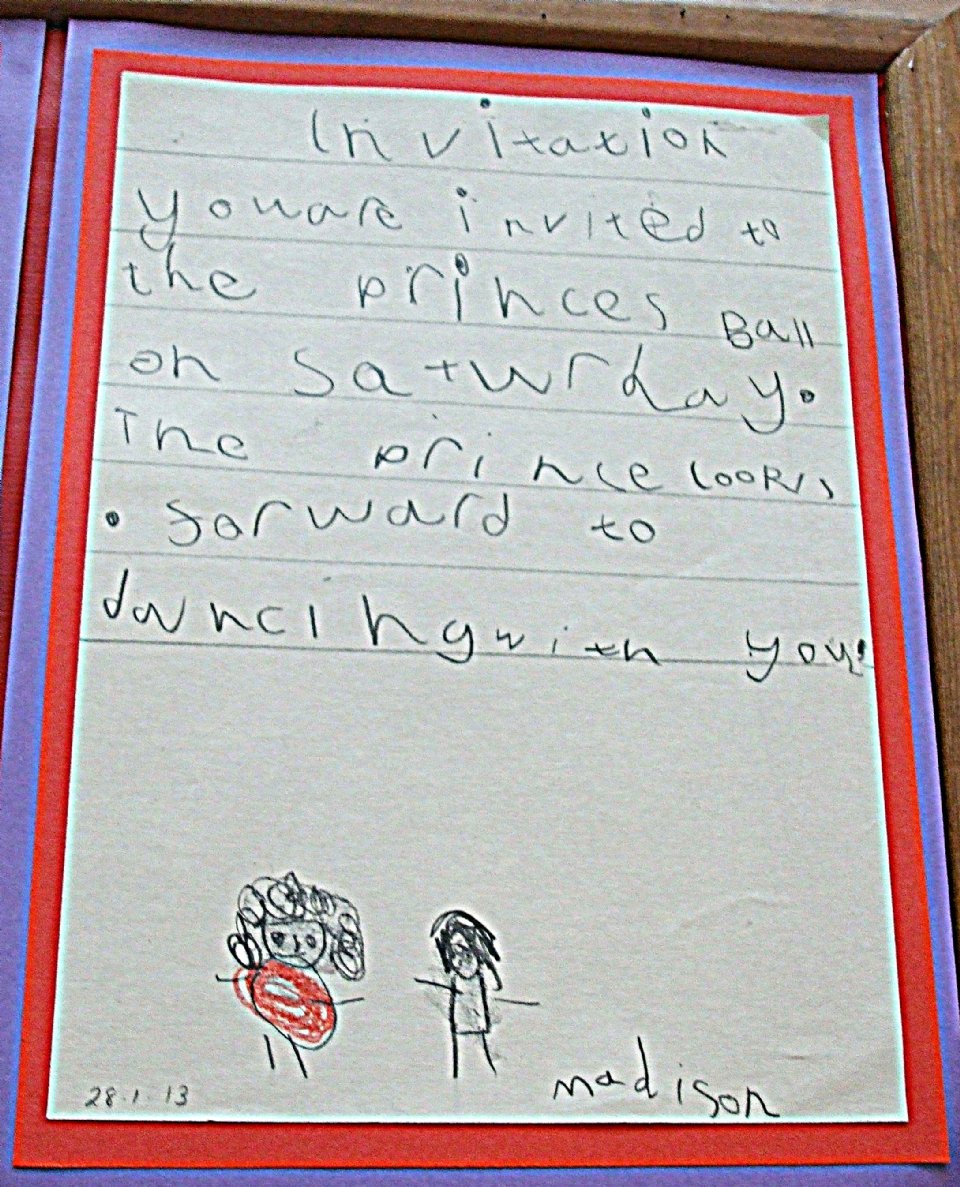 Invitation
you are invited to
the princes Ball
on Saturday.
The prince looks
. forward to
dancing with you!
madison
28.1.13